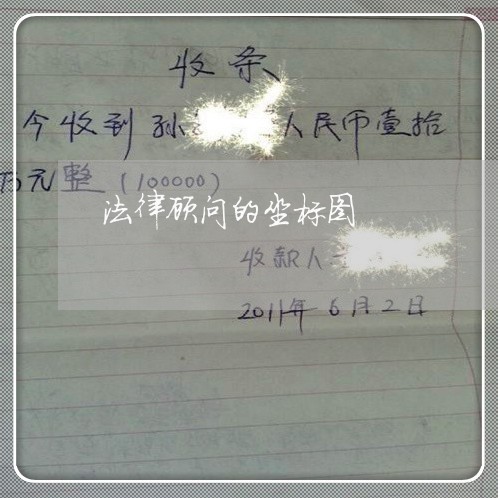 收条
今收到孙 人民币壹拾
万元整（100000）
法律顾问的坐标图
收款人
2011年6月2日